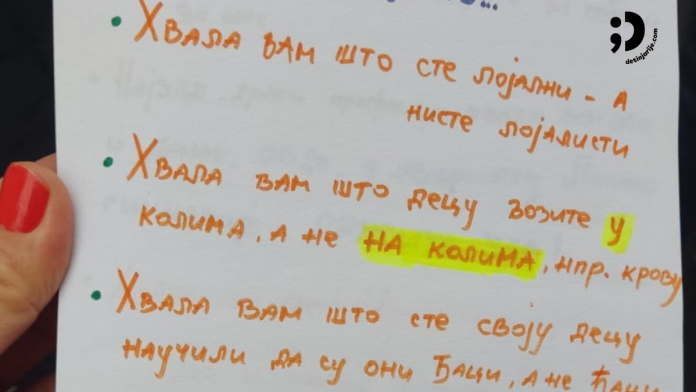 detinjarije.com
• Хвала вам што сте лојални - а
нисте лојалисти
• Хвала вам што децу возите у
колима, а не на колима, нпр. крову
• Хвала вам што сте своју децу
научили да су они ђаци, а не ћаци